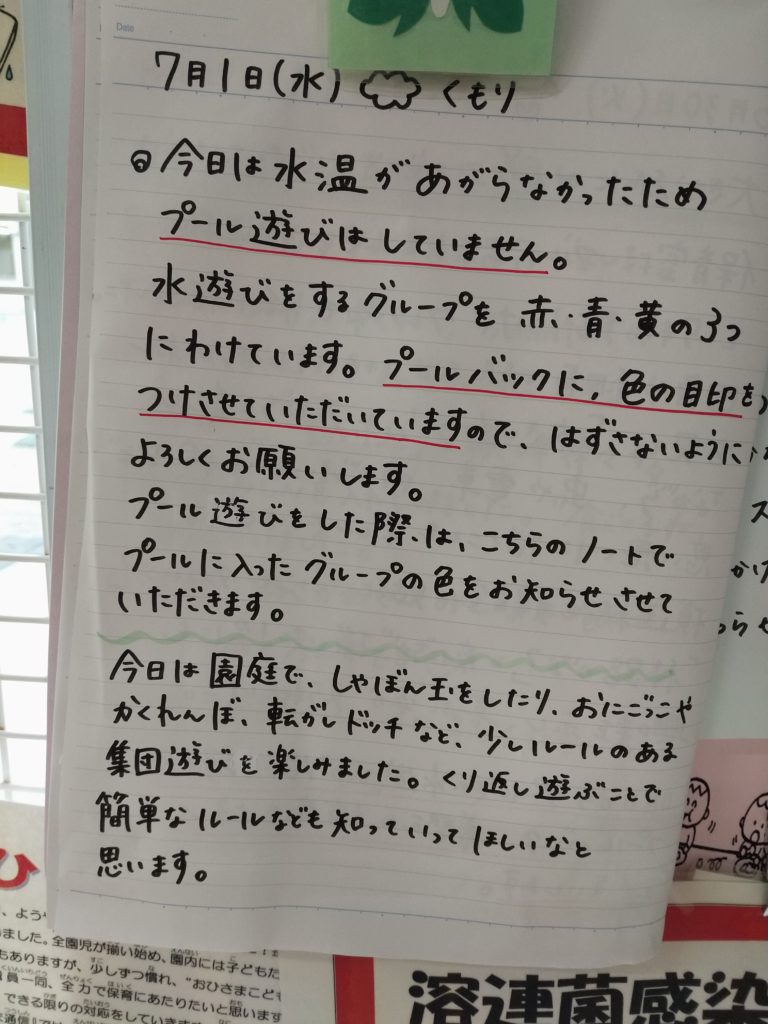 Date
7月1日(水) くもり
◎今日は水温があがらなかったため
プール遊びはしていません。
水遊びをするグループを 赤・青・黄の3つ
にわけています。プールバックに、色の目印を
つけさせていただいていますので、はずさないように
よろしくお願いします。
プール遊びをした際は、こちらのノートで
プールに入ったグループの色をお知らせさせて
いただきます。
今日は園庭で、しゃぼん玉をしたり、おにごっこや
かくれんぼ、転がしドッチなど、少しルールのある
集団遊びを楽しみました。くり返し遊ぶことで
簡単なルールなども知っていってほしいなと
思います。
ひ
、よう
ました。全園児が揃い始め、園内には子どもた
もありますが、少しずつ慣れ、"おひさまこども
員一同、全力で保育にあたりたいと思います
できる限りの対応をしていきます
溶連菌感染